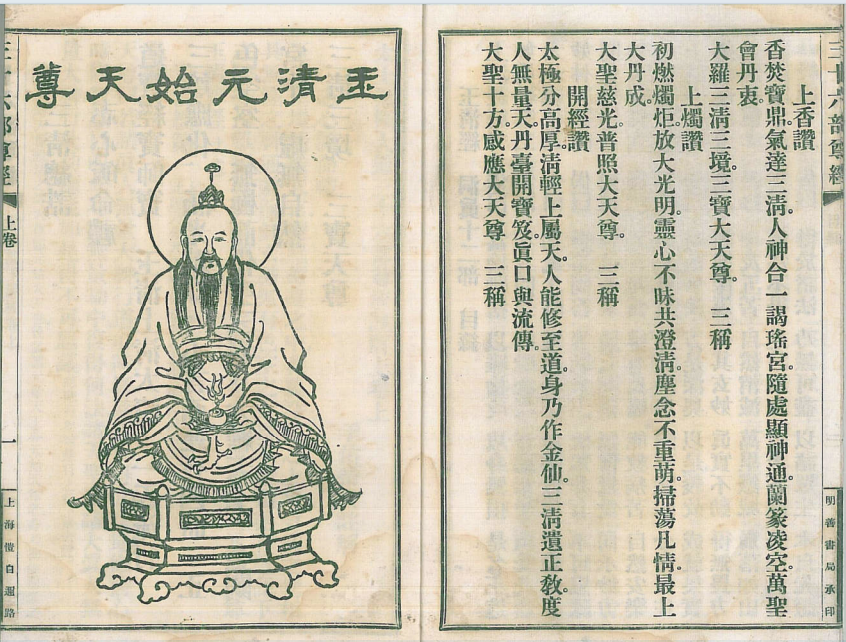 三十六部尊經
明善書局承印
上香讚
香焚寶鼎。氣達三清。人神合一謁瑤宮。隨處顯神通。蘭篆凌空。萬聖
會丹衷。
大羅三清三境。三寶大天尊。 三稱
上燭讚
初燃燭炬。放大光明。靈心不昧共澄清。塵念不重萌。掃蕩凡情。最上
大丹成。
大聖慈光普照大天尊。 三稱
開經讚
太極分高厚。清輕上屬天。人能修至道。身乃作金仙。三清遺正教。度
人無量天。丹臺開寶笈。眞口與流傳。
大聖十方感應大天尊 三稱
玉清元始天尊
三十六部尊經
上卷
一
上海愷自邇路